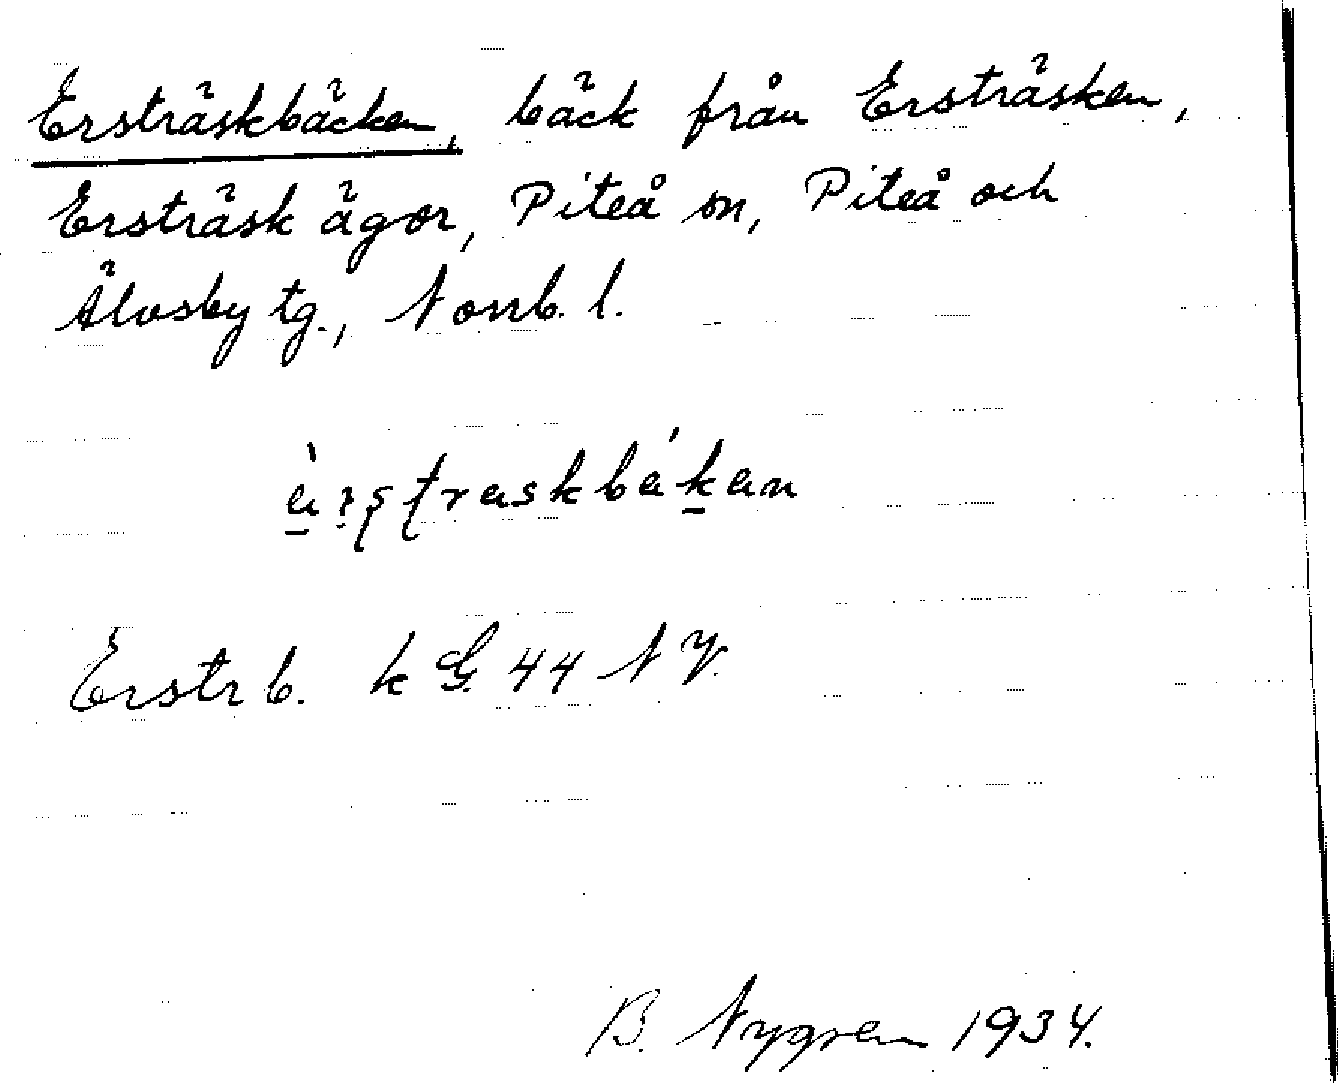 Ersträskbäcken, bäck från Ersträsken,
Ersträsk ägor, Piteå sn, Piteå och
Älvsby tg., Norrb. l.
Erstr b. k G. 44 NY.
B. Nygren 1934.